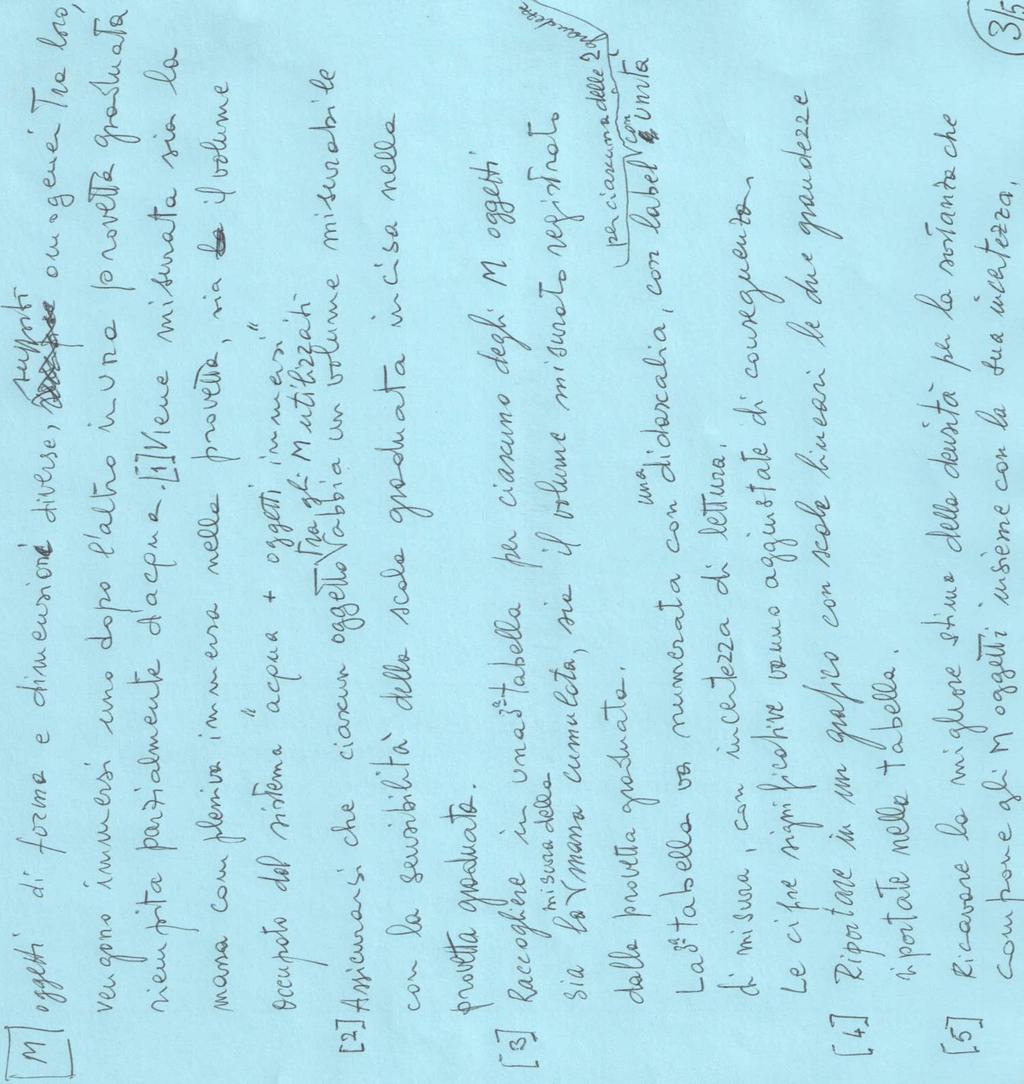 [M] oggetti di forma e dimensioni diverse, supposti omogenei tra loro,
vengono immersi uno dopo l'altro in una provetta graduata
riempita parzialmente d'acqua. [1] Viene misurata sia la
massa complessiva immersa nella provetta, sia il volume
occupato dal sistema "acqua + oggetti immersi"
[2] Assicurarsi che ciascun oggetto tra gli M utilizzati abbia un volume misurabile
con la sensibilità della scala graduata incisa nella
provetta graduata.
[3] Raccogliere in una 3ª tabella per ciascuno degli M oggetti
sia la misura della massa cumulata, sia il volume misurato registrato
dalla provetta graduata.
La 3ª tabella va numerata con una didascalia, con label con unità
per ciascuna delle 2 grandezze
di misura, con incertezza di lettura.
Le cifre significative vanno aggiustate di conseguenza
[4] Riportare in un grafico con scale lineari le due grandezze
riportate nella tabella.
[5] Ricavare la migliore stima della densità per la sostanza che
compone gli M oggetti insieme con la sua incertezza.
3/5